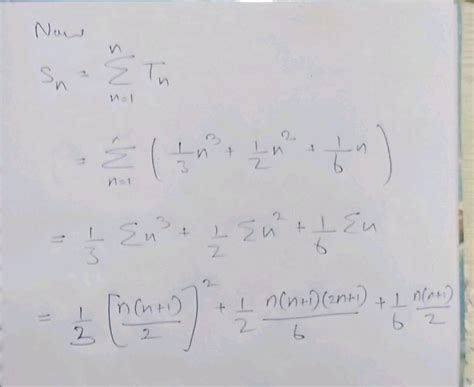 Now
Sₙ = n Σ n=1 Tₙ
= Σ n=1 ( 1/3 n³ + 1/2 n² + 1/6 n )
= 1/3 Σn³ + 1/2 Σn² + 1/6 Σn
= 1/3 [ n(n+1)/2 ]² + 1/2 n(n+1)(2n+1)/6 + 1/6 n(n+1)/2